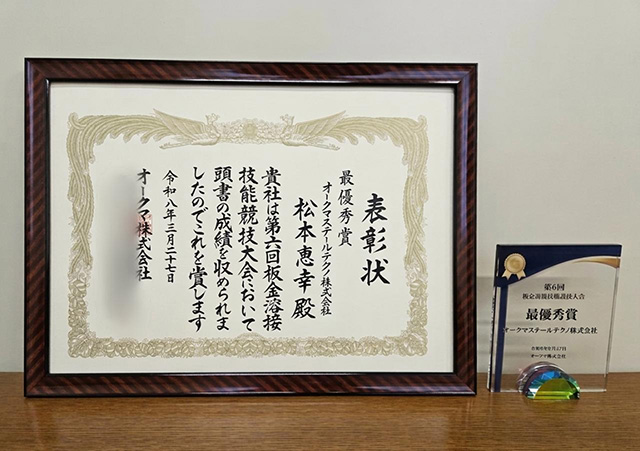 表彰状
最優秀賞
オークマスチールテクノ株式会社
松本恵幸 殿
貴社は第六回板金溶接
技能競技大会において
頭書の成績を収められま
したのでこれを賞します
令和八年三月二十七日
オークマ株式会社
第6回
最優秀賞
オークマスチールテクノ株式会社
オークマ株式会社